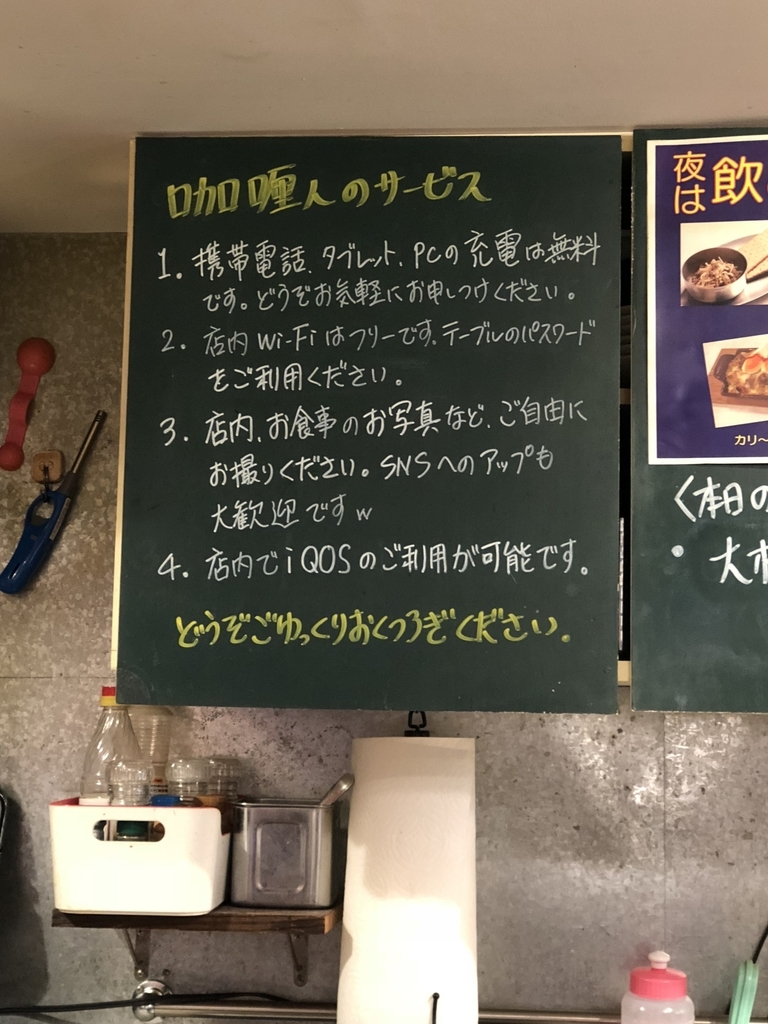 咖喱人のサービス
1. 携帯電話、タブレット、PCの充電は無料
です。どうぞお気軽にお申しつけください。
2. 店内Wi-Fiはフリーです。テーブルのパスワード
をご利用ください。
3. 店内、お食事のお写真など、ご自由に
お撮りください。SNSへのアップも
大歓迎ですw
4. 店内でiQOSのご利用が可能です。
どうぞごゆっくりおくつろぎください。
夜は飲
カリ〜
〈本日の
・大